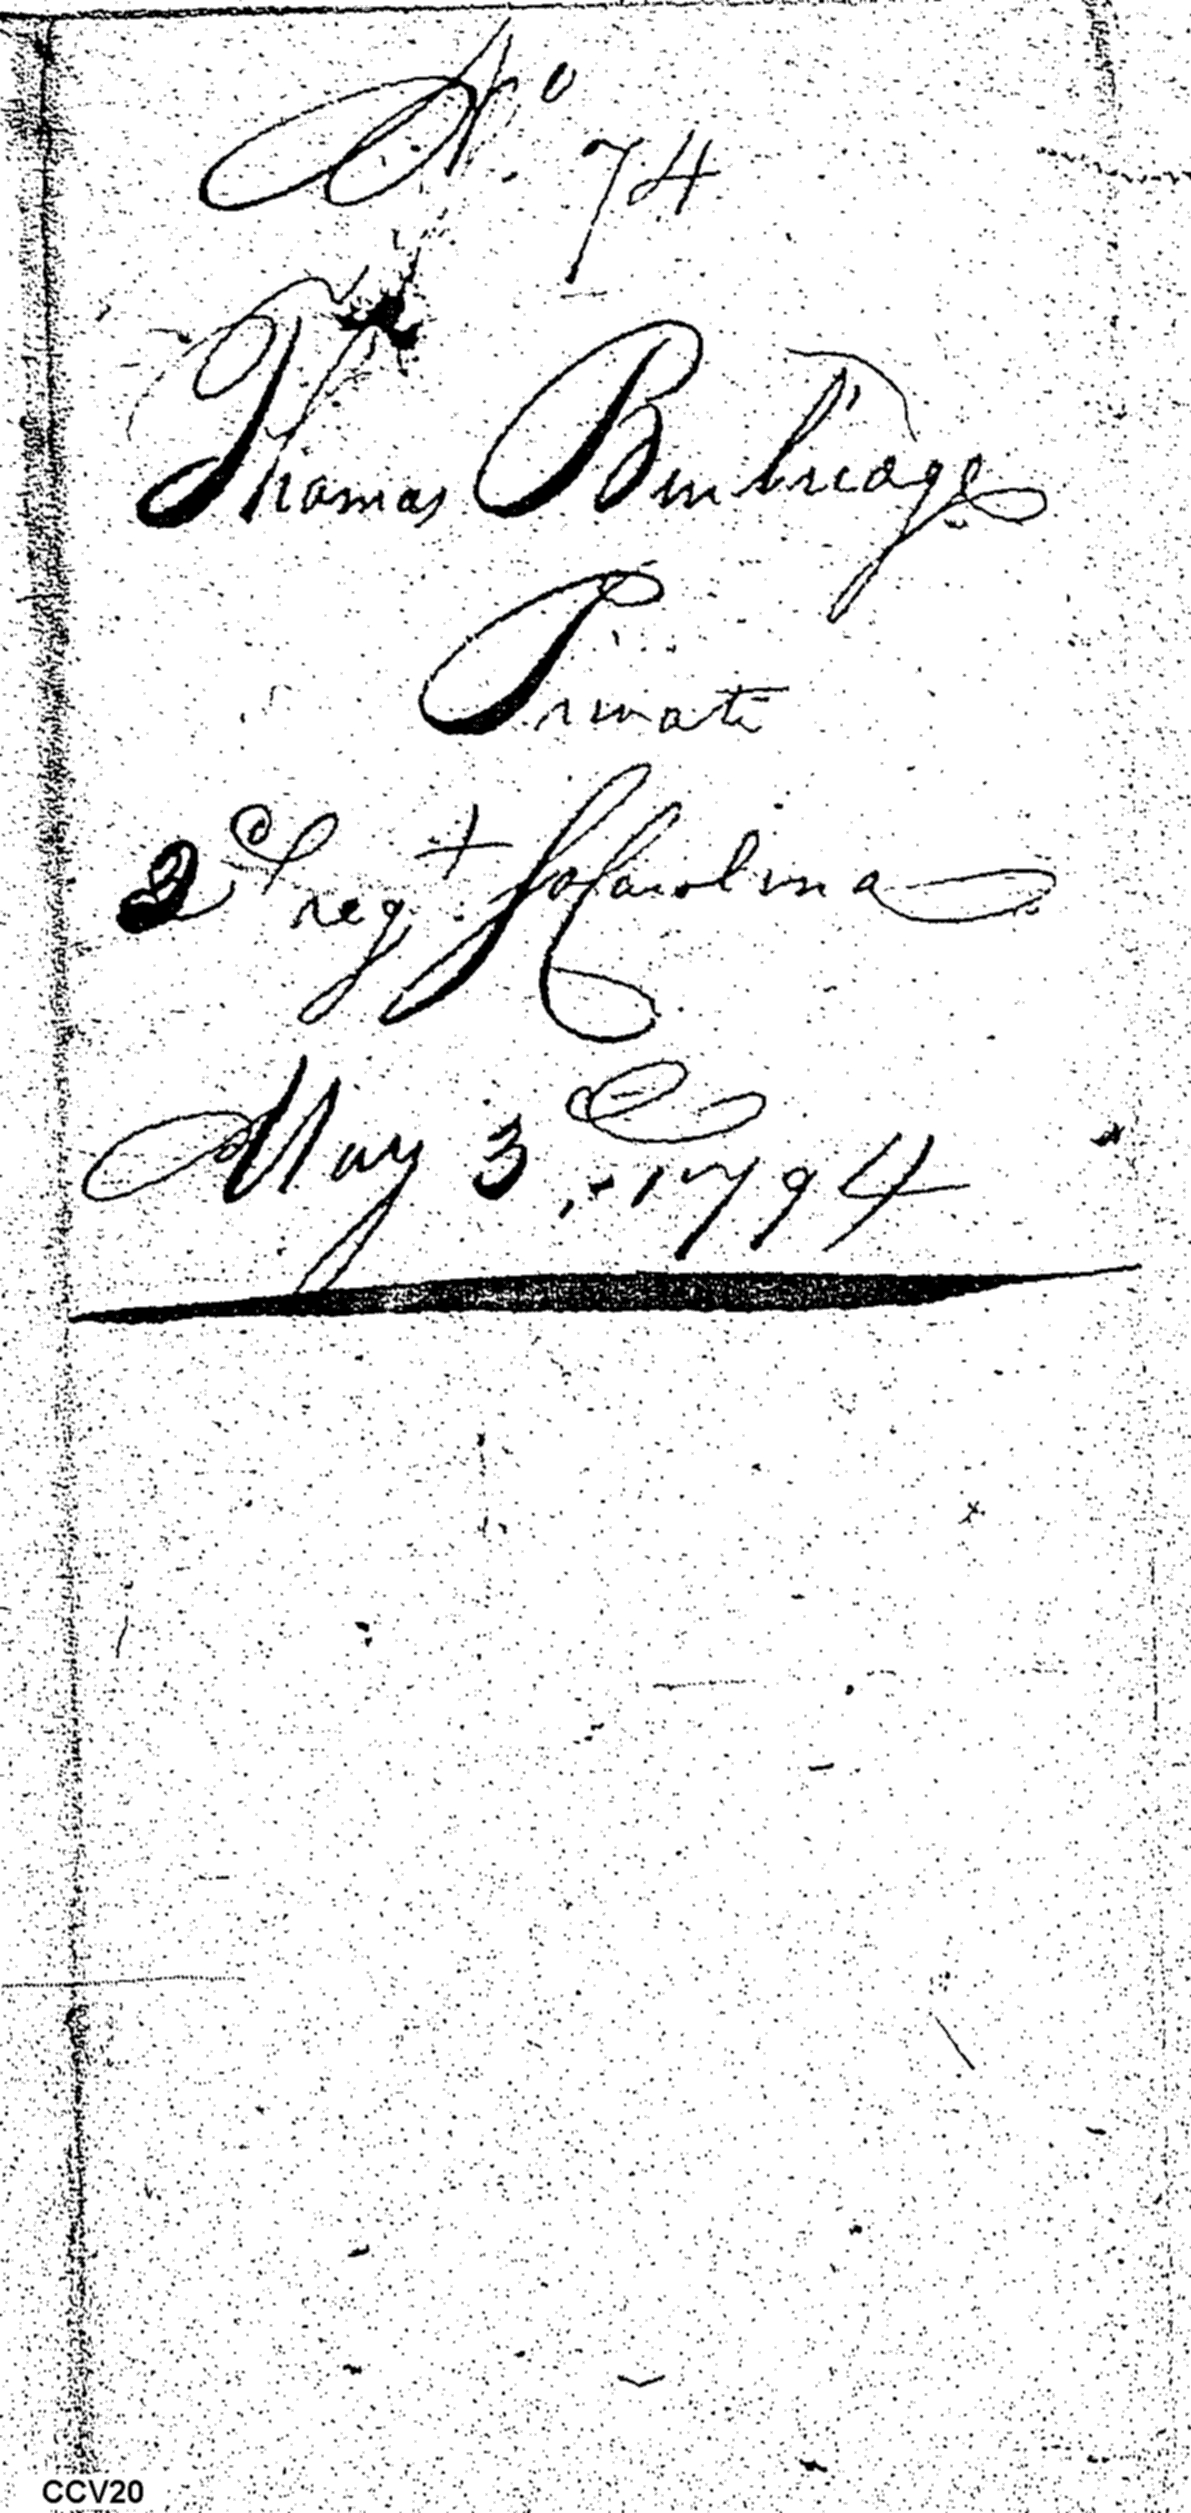 No. 74
Thomas Bumbridge
Private
3d regt So Carolina
May 3d, 1794
CCV20